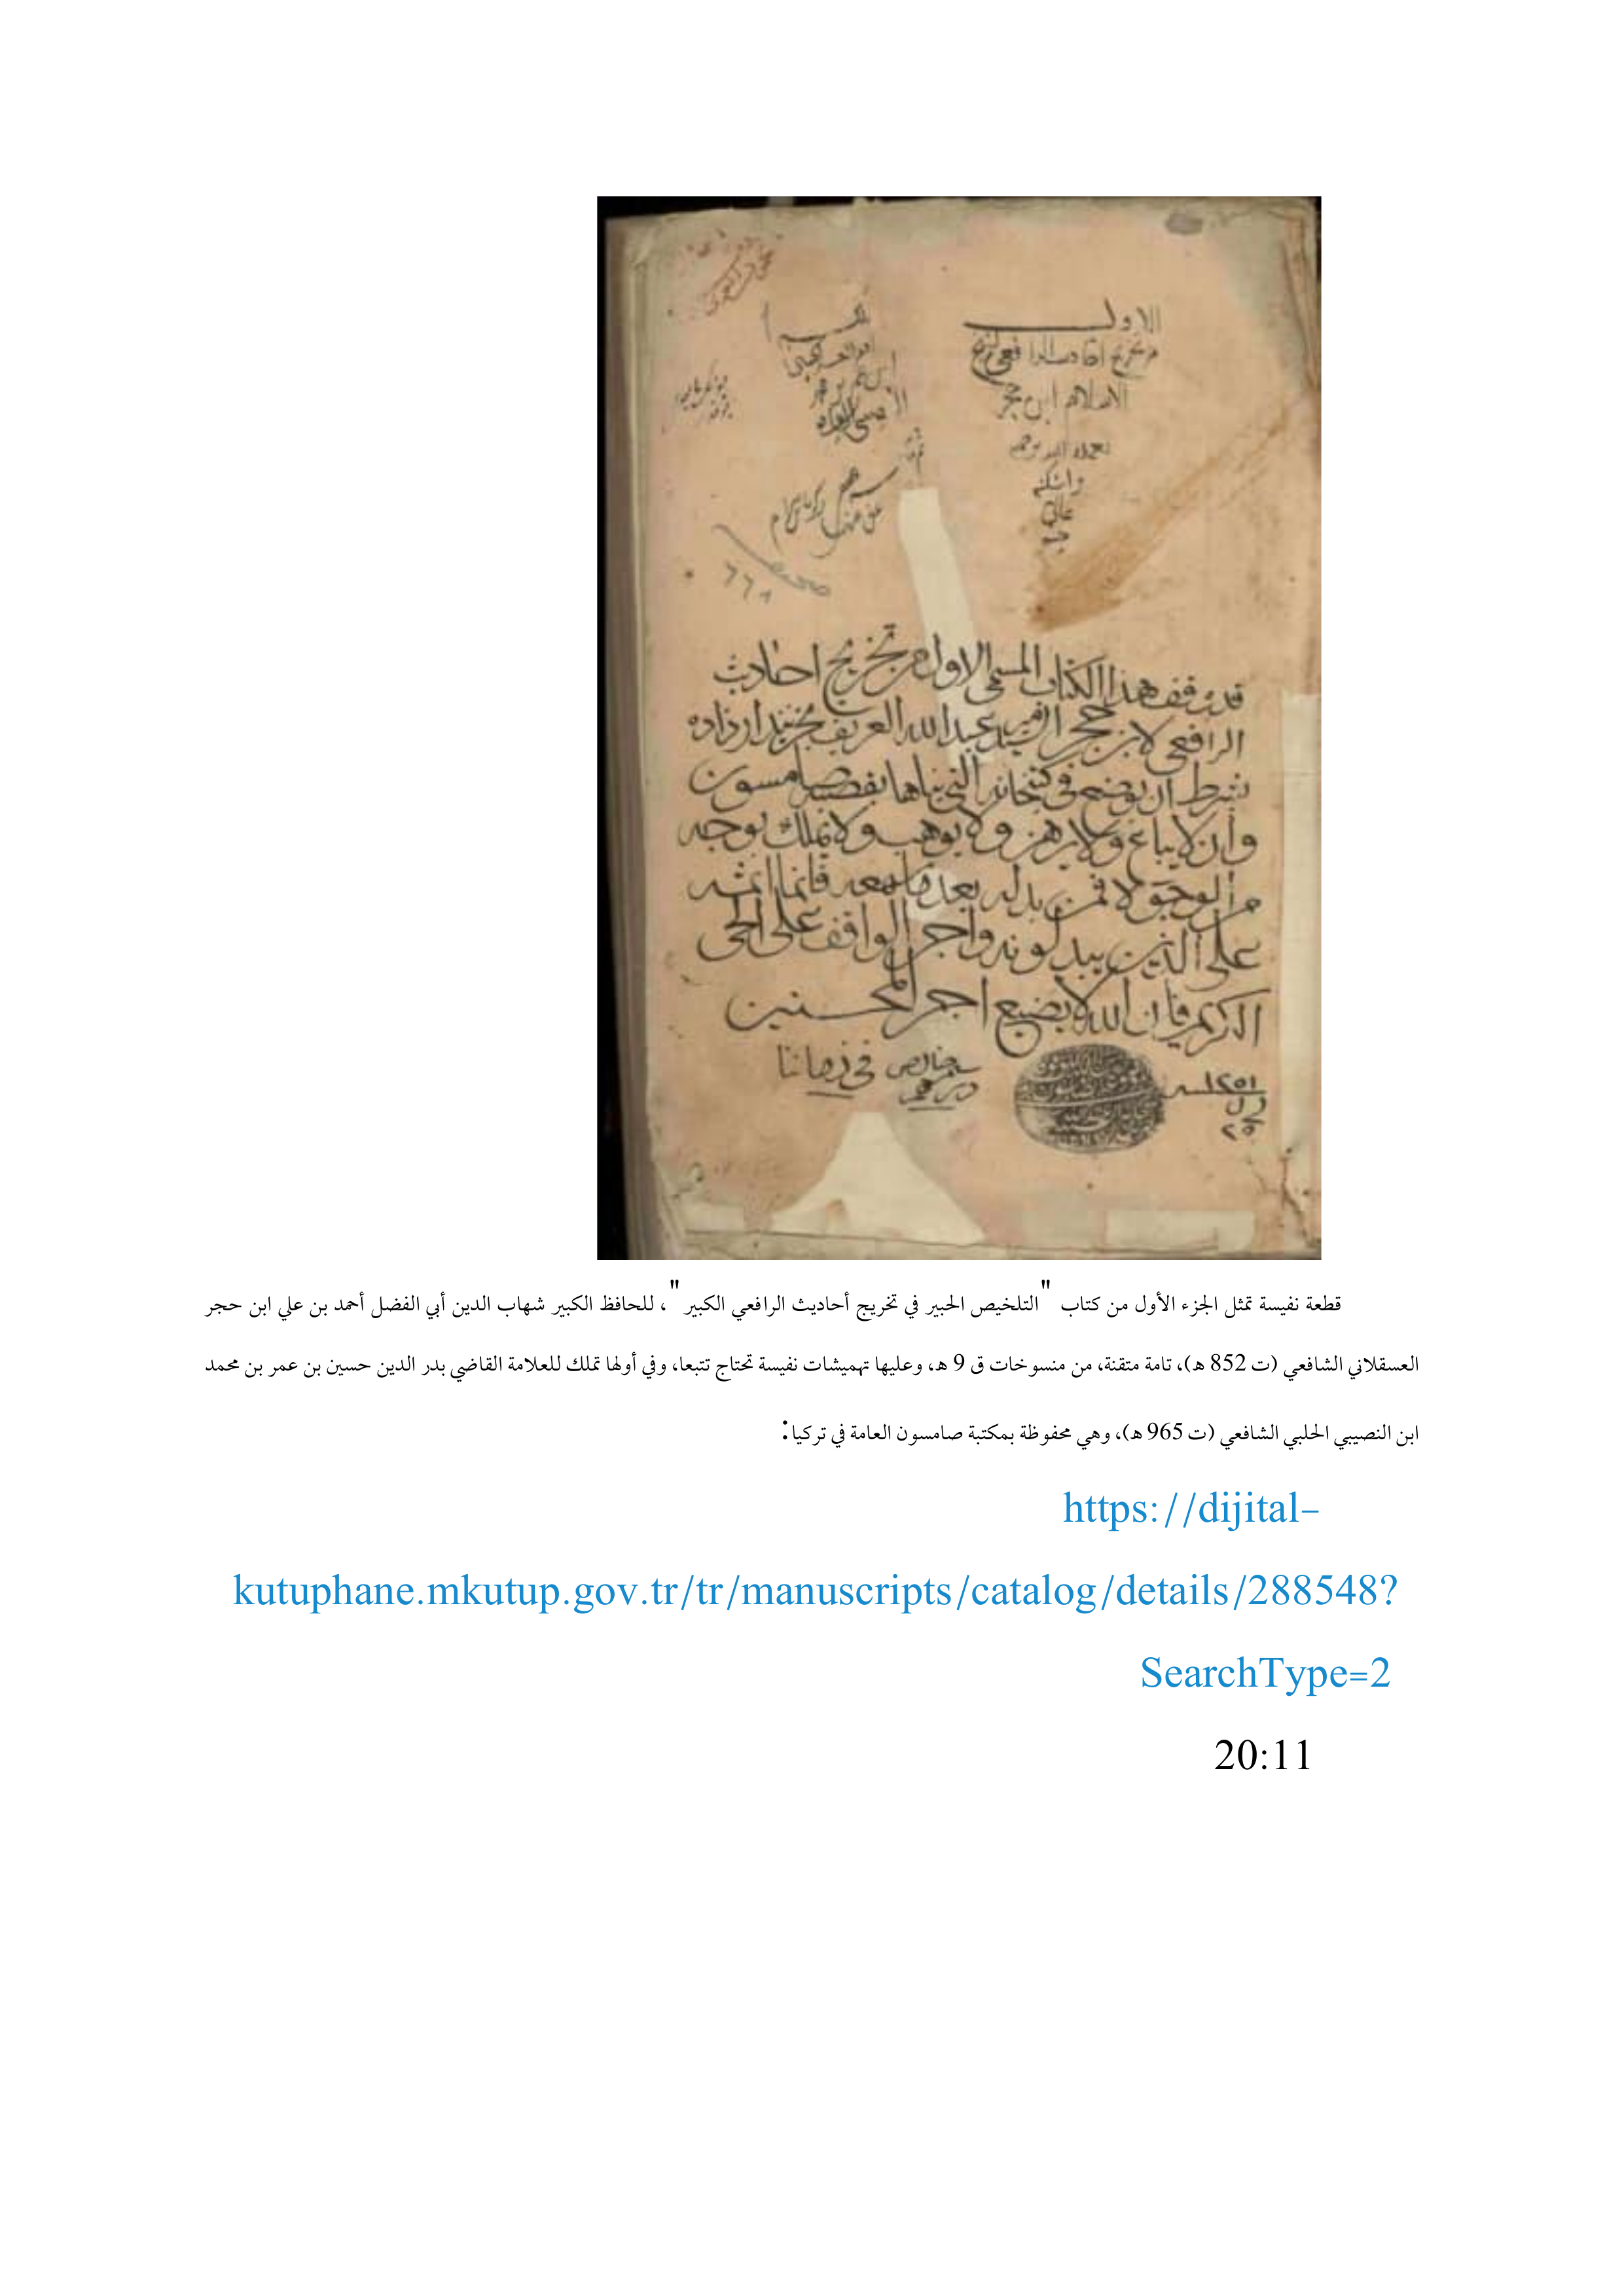 الاول
من تخريج احاديث الرافعي لشيخ
الاسلام ابن حجر
تغمده الله برحمته
واسكنه
قد وقف هذا الكتاب المسمى الاول من تخريج احاديث
الرافعي لابن حجر السيد عبدالله العريف بخزينه دار زاده
بشرط ان يوضع في كتبخانه التي بناها بقصبة صامسون
وان لا يباع ولا يرهن ولا يوهب ولا يملك بوجه
من الوجوه فمن بدله بعد ما سمعه فانما اثمه
على الذين يبدلونه واجر الواقف على الحي
الكريم فان الله لا يضيع اجر المحسنين
في زماننا
سنه ١٢٥١
٢٥
قطعة نفيسة تمثل الجزء الأول من كتاب "التلخيص الحبير في تخريج أحاديث الرافعي الكبير"، للحافظ الكبير شهاب الدين أبي الفضل أحمد بن علي ابن حجر
العسقلاني الشافعي (ت 852 هـ)، تامة متقنة، من منسوخات ق 9 هـ، وعليها تهميشات نفيسة تحتاج تتبعا، وفي أولها تملك للعلامة القاضي بدر الدين حسين بن عمر بن محمد
ابن النصيبي الحلبي الشافعي (ت 965 هـ)، وهي محفوظة بمكتبة صامسون العامة في تركيا:
https://dijital-
kutuphane.mkutup.gov.tr/tr/manuscripts/catalog/details/288548?
SearchType=2
20:11